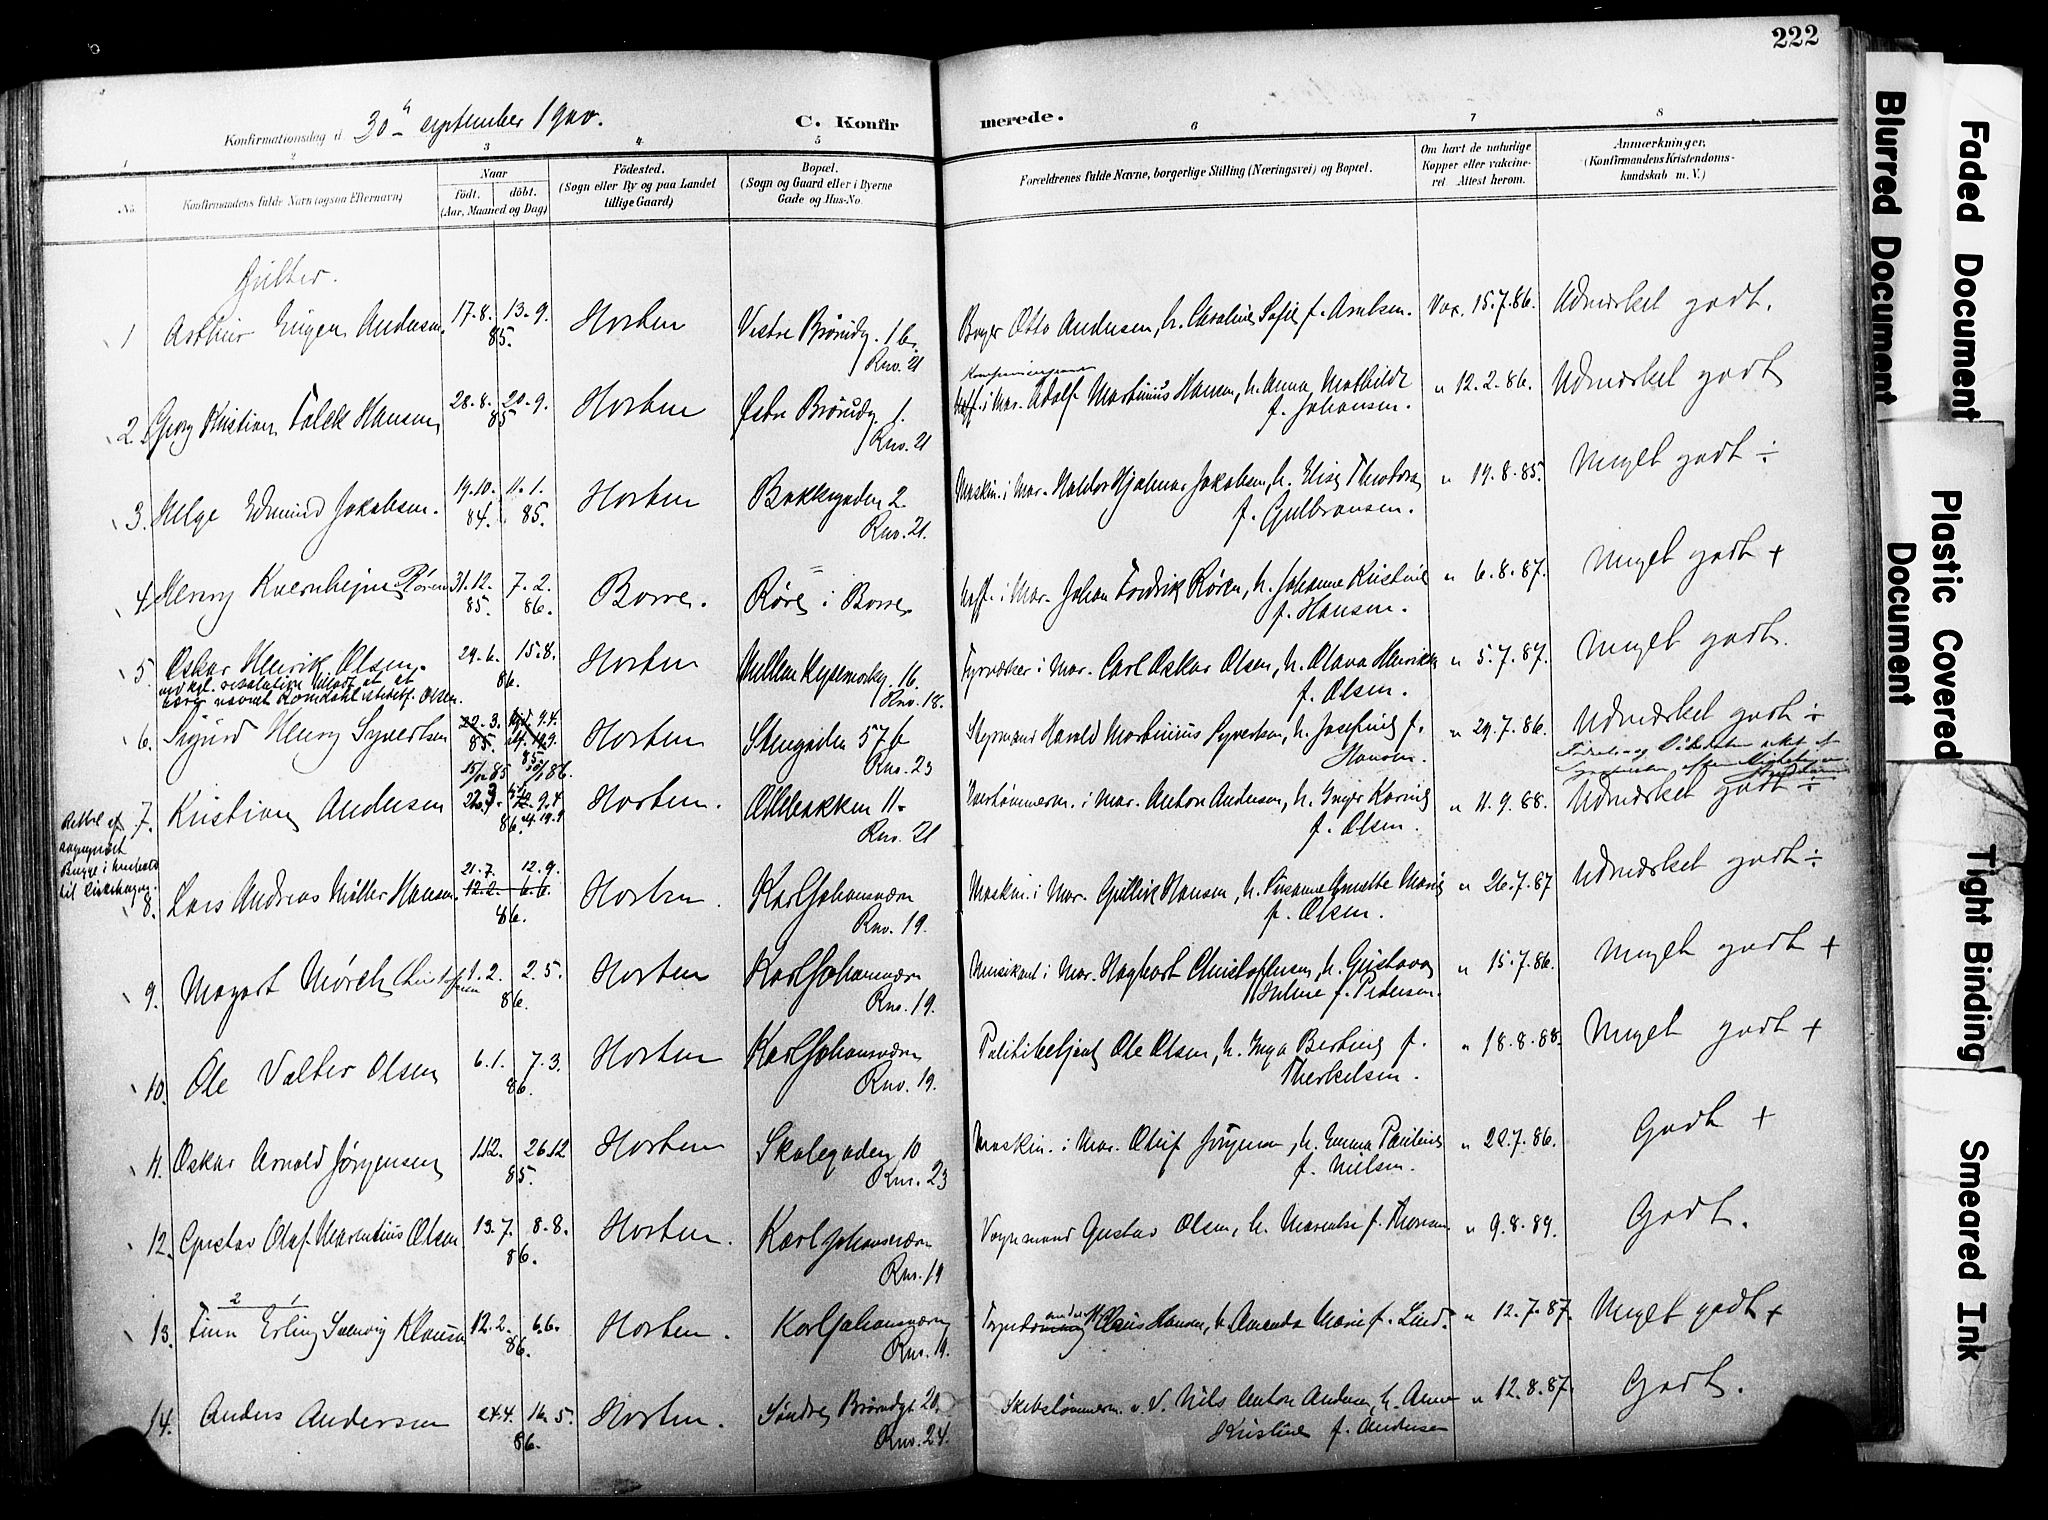 222
Konfirmationsdag d. 30te september 1900.
C. Konfirmerede.
1
2
3
4
5
6
7
8
No.
Konfirmandens fulde Navn (ogsaa Efternavn)
Naar
født. døbt.
(Aar, Maaned og Dag)
Fødested.
(Sogn eller By og paa Landet tillige Gaard)
Bopæl.
(Sogn og Gaard eller i Byerne Gade og Hus-No.
Forældrenes fulde Navne, borgerlige Stilling (Næringsvei) og Bopæl.
Om havt de naturlige Kopper eller vakcinerei Attest herom.
Anmerkninger,
(Konfirmandens Kristendomskundskab m. V.)
Gutter.
1 Arthur Eugen Andersen 17-8. 13-9. 85. Horten Vestre Brørudg. 16. Rnv. 21
Otto Andersen, h. Caroline Sofie f. Arntsen. Vax. 15.7.86. Udmærket godt.
2. Georg Kristian Falck Hansen 28-8. 20-9. 85 Horten Østre Brørudg. 1. Rnv. 21
i Mar. Adolf Martinius Hansen, h. Anna Mathilde f. Johansen. " 12.2.86. Udmærket godt
3. Helge Edmund Jakobsen. 19.10. 84. 11.1. 85. Horten Bakkegaden 2. Rnv. 21.
Maskin. i Mar. Haldor Hjalmar Jakobsen, h. Elise Theodora f. Gulbransen. " 19.8.85. Meget godt ÷
4 Henry Kvernhejm Røren 31.12. 85. 7.2. 86. Borre. Røre i Borre
i Mar. Johan Fredrik Røren, h. Johanne Kristine f. Hansen. " 6.8.87. Meget godt +
5. Oskar Henrik Olsen. 29.6. 15.8. 86. Horten Mellem 16. Rnv. 18.
ved kgl. resolution tilladt at bære navnet Romdahl istedetf. Olsen.
Fyrbøder i Mar. Carl Oskar Olsen, h. Olava f. Olsen. " 5.7.87. Meget godt.
6. Sigurd Henry Syvertsen 22-3. 85. Horten Stengaden 57 b Rnv. 23
Styrmand Harald Martinius Syvertsen, h. Josefine f. Hansen. " 29.7.86. Udmærket godt ÷
7. Kristian Andersen 86. Horten. Ollebakken 11. Rnv. 21
i Mar. Anton Andersen, h. Inger Karine f. Olsen. " 11.9.88. Udmærket godt ÷
8. Lars Andreas Møller Hansen. 21.7. 12.9. 12.2. 6.6. 86. Horten. Karljohansværn Rnv. 19.
Maskin. i Mar. Gullik Hansen, h. Susanne Annette Marie f. Olsen. " 26.7.87 Udmærket godt ÷
9. Mozart Mørch Christoffersen 1.2. 2.5. 86. Horten Karljohansværn Rnv. 19.
Musikant i Mar. Hagbart Christoffersen, h. Gustava Hilme f. Pedersen. " 15.7.86. Meget godt +
10. Ole Valter Olsen 6.1. 7.3. 86. Horten Karljohansværn Rnv. 19.
Politibetjent Ole Olsen, h. Inga Bertine f. Therkelsen. " 18.8.88. Meget godt +
11. Oskar Arnold Jørgensen 1.12. 26.12 85. Horten Skolegaden 10 Rnv. 23
Maskin. i Mar. Oluf Jørgensen, h. Emma Pauline f. Nielsen. " 22.7.86. Godt +
12. Gustav Olaf Marentius Olsen 13.7. 8.8. 86. Horten. Karljohansværn Rnv. 19
Vognmand Gustav Olsen, h. Marentse f. Thoresen. " 9.8.89. Godt.
13. Finn Erling Solvvig Klausen 12.2. 6.6. 86. Horten. Karljohansværn Rnv. 19.
Claus Hansen, h. Amanda Marie f. Lind. " 12.7.87. Meget godt +
14. Anders Andersen 24.4. 16.5. 86. Horten. Søndre Brørudgt 20. Rnv. 24.
Skibstømmerm. v. V. Nils Anton Andersen, h. Anne Kristine f. Andersen " 12.8.87. Godt.
Faded Document
Blurred Document
Plastic Covered Document
Tight Binding
Smeared Ink